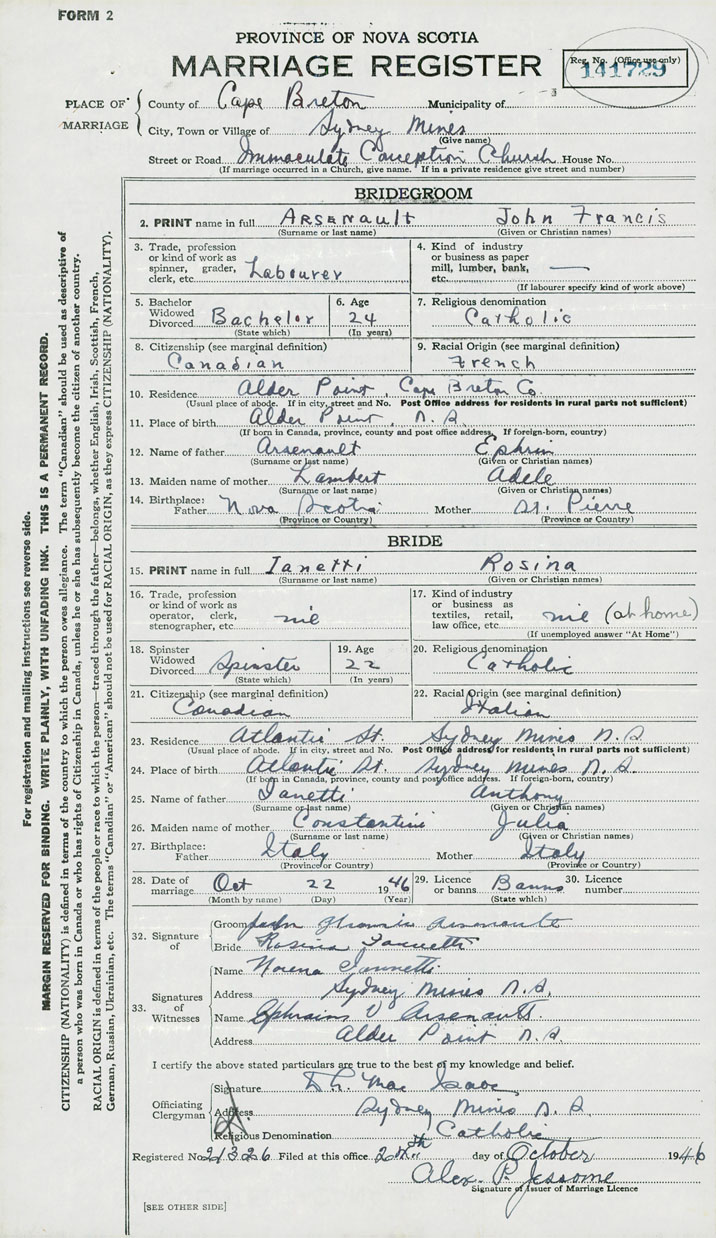 FORM 2
PROVINCE OF NOVA SCOTIA
MARRIAGE REGISTER
Reg. No. (Office use only)
141729
PLACE OF MARRIAGE
County of Cape Breton Municipality of
City, Town or Village of Sydney Mines
(Give name)
Street or Road Immaculate Conception Church House No.
(If marriage occurred in a Church, give name. If in a private residence give street and number)
BRIDEGROOM
2. PRINT name in full ARSENAULT John Francis
(Surname or last name) (Given or Christian names)
3. Trade, profession or kind of work as spinner, grader, clerk, etc. Labourer
4. Kind of industry or business as paper mill, lumber, bank, etc. —
(If labourer specify kind of work above)
5. Bachelor Widowed Divorced Bachelor
(State which)
6. Age 24
(In years)
7. Religious denomination
Catholic
8. Citizenship (see marginal definition)
Canadian
9. Racial Origin (see marginal definition)
French
10. Residence Alder Point, Cape Breton Co
(Usual place of abode. If in city, street and No. Post Office address for residents in rural parts not sufficient)
11. Place of birth Alder Point, N.S.
(If born in Canada, province, county and post office address. If foreign-born, country)
12. Name of father Arsenault Ephrim
(Surname or last name) (Given or Christian names)
13. Maiden name of mother Lambert Adele
(Surname or last name) (Given or Christian names)
14. Birthplace: Father Nova Scotia Mother St. Pierre
(Province or Country) (Province or Country)
BRIDE
15. PRINT name in full Ianetti Rosina
(Surname or last name) (Given or Christian names)
16. Trade, profession or kind of work as operator, clerk, stenographer, etc. nil
17. Kind of industry or business as textiles, retail, law office, etc. nil (at home)
(If unemployed answer "At Home")
18. Spinster Widowed Divorced Spinster
(State which)
19. Age 22
(In years)
20. Religious denomination
Catholic
21. Citizenship (see marginal definition)
Canadian
22. Racial Origin (see marginal definition)
Italian
23. Residence Atlantic St. Sydney Mines N.S.
(Usual place of abode. If in city, street and No. Post Office address for residents in rural parts not sufficient)
24. Place of birth Atlantic St. Sydney Mines N.S.
(If born in Canada, province, county and post office address. If foreign-born, country)
25. Name of father Ianetti Anthony
(Surname or last name) (Given or Christian names)
26. Maiden name of mother Constantini Julia
(Surname or last name) (Given or Christian names)
27. Birthplace: Father Italy Mother Italy
(Province or Country) (Province or Country)
28. Date of marriage Oct 22 1946
(Month by name) (Day) (Year)
29. Licence or banns Banns
(State which)
30. Licence number
32. Signature of
Groom John Francis Arsenault
Bride Rosina Iannetti
33. Signatures of Witnesses
Name Norena Iannetti
Address Sydney Mines N.S.
Name Ephraim V Arsenault
Address Alder Point N.S.
I certify the above stated particulars are true to the best of my knowledge and belief.
Officiating Clergyman
Signature Mac Isaac
Address Sydney Mines N.S.
Religious Denomination Catholic
Registered No. 21326 Filed at this office day of October 1946
Alex. P. Jessome
Signature of Issuer of Marriage Licence
[SEE OTHER SIDE]
For registration and mailing instructions see reverse side.
MARGIN RESERVED FOR BINDING. WRITE PLAINLY, WITH UNFADING INK. THIS IS A PERMANENT RECORD.
CITIZENSHIP (NATIONALITY) is defined in terms of the country to which the person owes allegiance. The term "Canadian" should be used as descriptive of
a person who was born in Canada or who has rights of Citizenship in Canada, unless he or she has subsequently become the citizen of another country.
RACIAL ORIGIN is defined in terms of the people or race to which the person—traced through the father—belongs, whether English, Irish, Scottish, French,
German, Russian, Ukrainian, etc. The terms "Canadian" or "American" should not be used for RACIAL ORIGIN, as they express CITIZENSHIP (NATIONALITY).